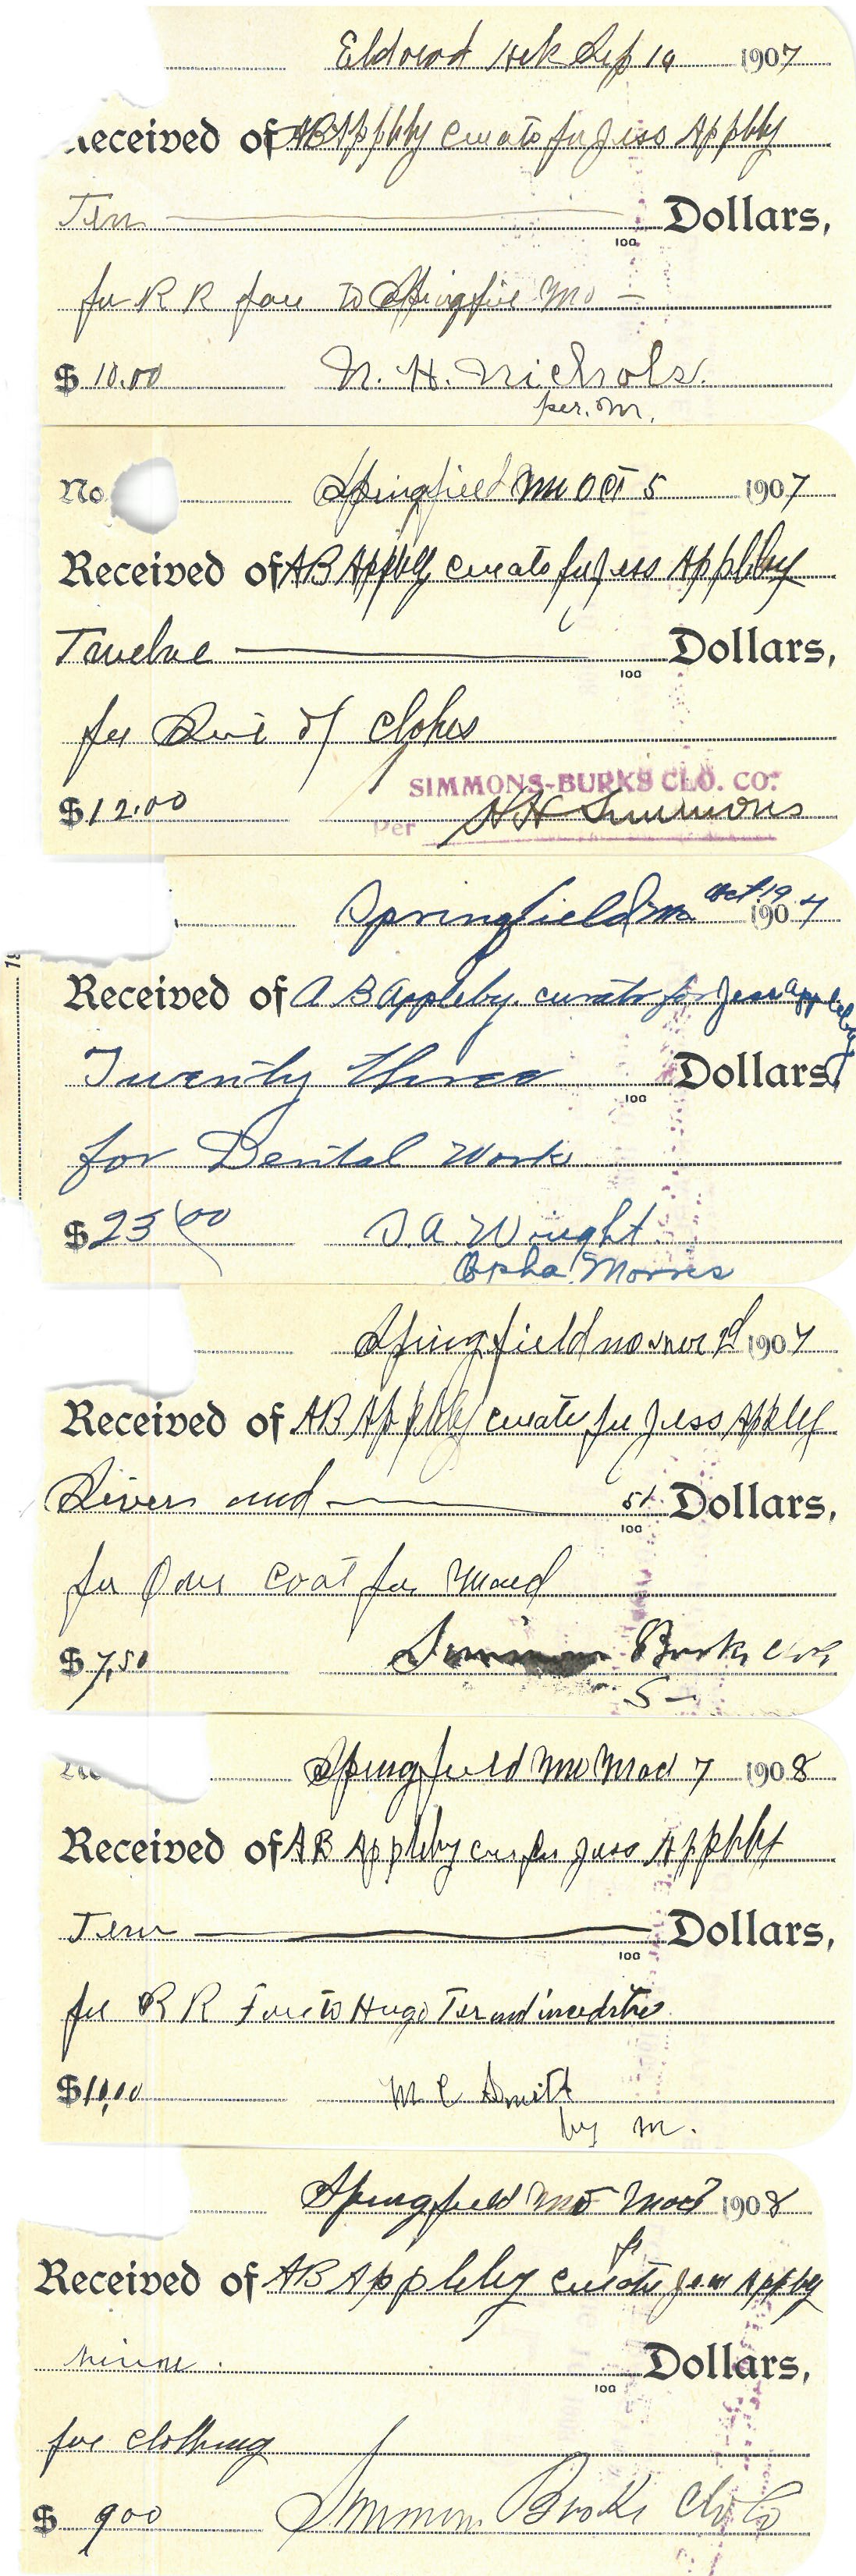 Sep 19 1907
Received of AB Appbly curato for Jess Appbly
Ten 100 Dollars,
for R R fare to Springfie Mo
$ 10.00 N. H. Nichols.
per. M.
No. Springfield Mo Oct 5 1907
Received of AB Appbly curato for Jess Appbley
Twelve 100 Dollars,
for Suit of Clohes
SIMMONS-BURKS CLO. CO.
$12.00 Per HH Simmons
Springfield Mo Oct 19 1907
Received of A B Appleby. curator for Jess Appleby
Twenty three 100 Dollars,
for Dental Work
$ 23 00 D. A. Wright.
Opha Morris
Springfield 1907
Received of AB Appbly curato for Jess Appley
Seven and 51 100 Dollars,
for One Coat for
$ 7.50 Burks
Springfield Mo 7 1908
Received of AB Appleby cur for Jess Appbly
Ten 100 Dollars,
for R R Fare to Hugo Ter and
$10.00 M C Smith
by M.
Springfield Mo 1908
for
Received of AB Appleby curato Jess Appby
nine 100 Dollars,
for clothing
$ 900 Simmons Burks Clo Co